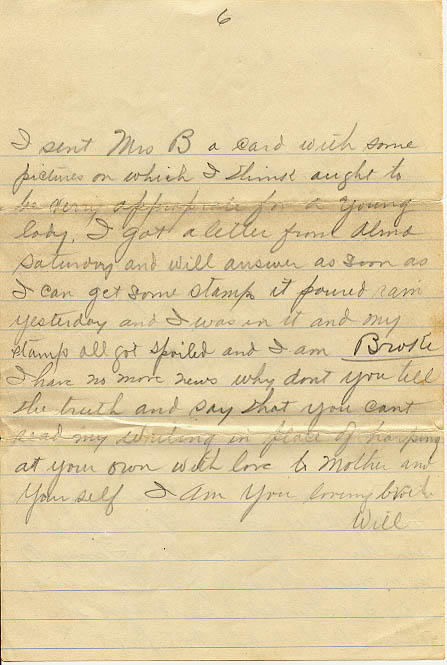 6
I sent Mrs B a card with some
pictures on which I think aught to
be very appropriate for a young
lady. I got a letter from Alma
Saturday and will answer as soon as
I can get some stamps it poured rain
yesterday and I was in it and my
stamps all got spoiled and I am Broke
I have no more news why dont you tell
the truth and say that you cant
read my writing in place of harping
at your own with love to Mother and
your self I Am you loving
Will